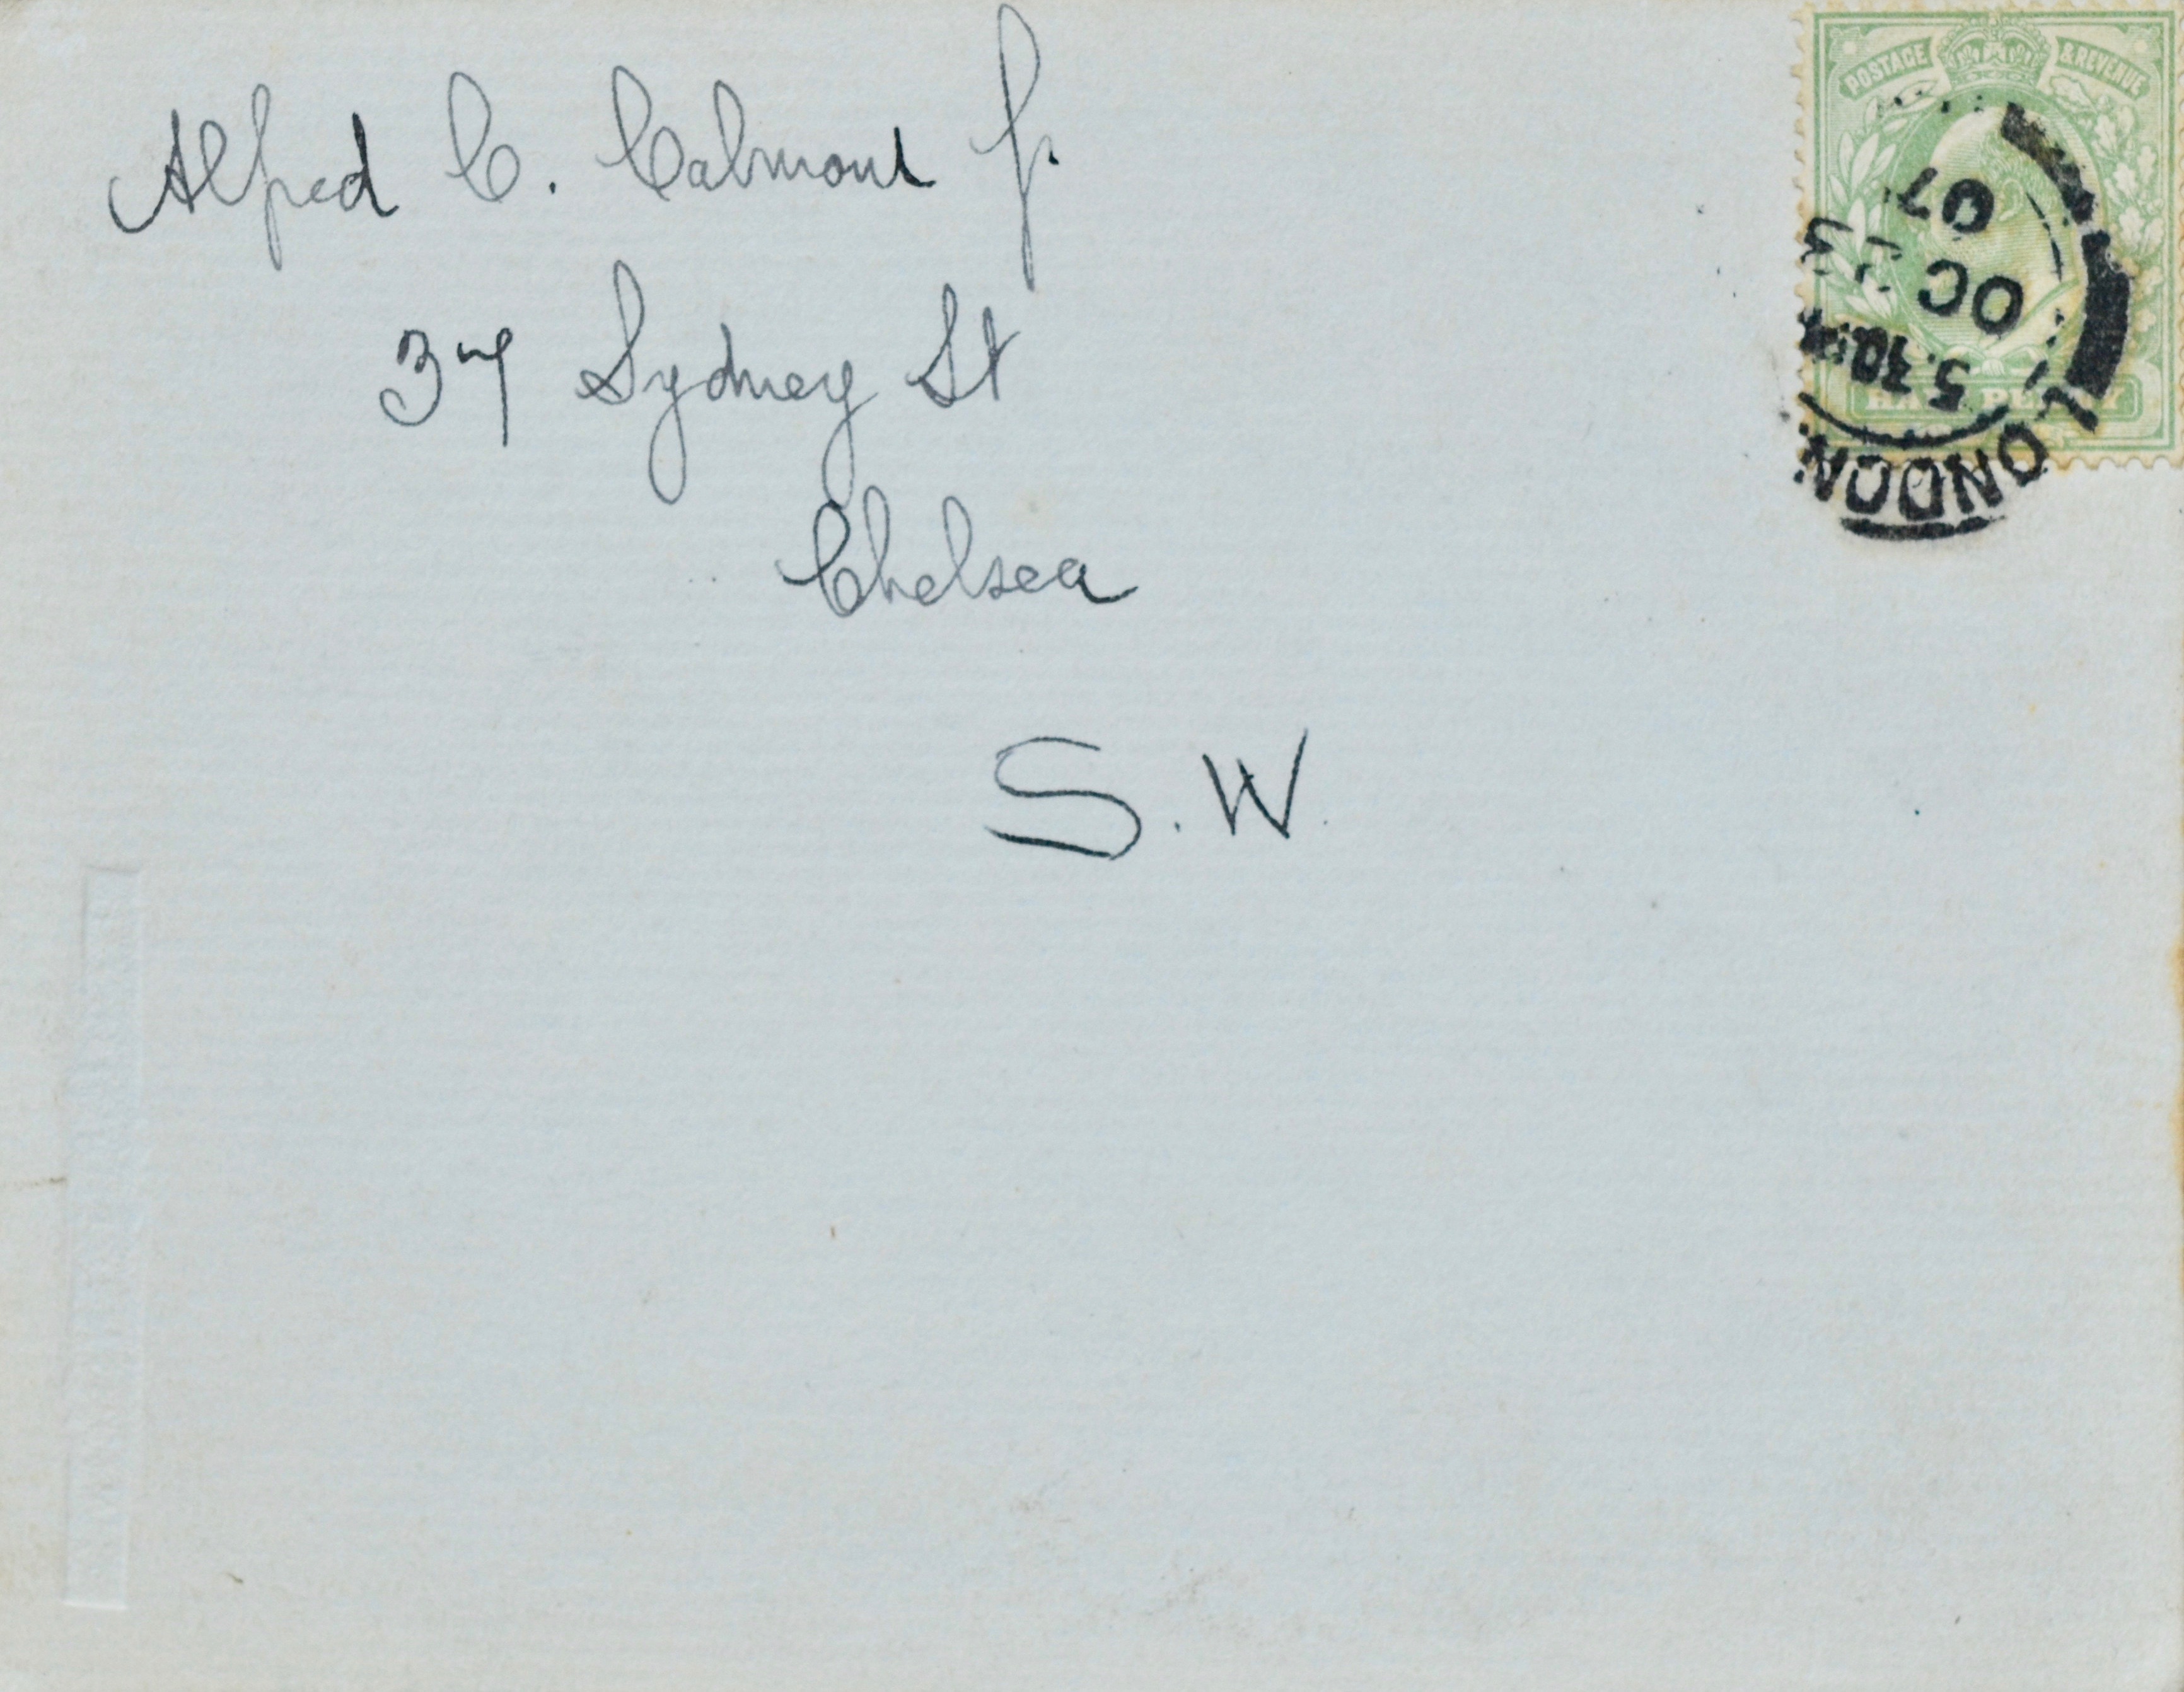 Alfred C. Calmour Jr.
37 Sydney St
Chelsea
S.W.
POSTAGE & REVENUE
HALFPENNY
LONDON.
5.30PM
OC 23
07